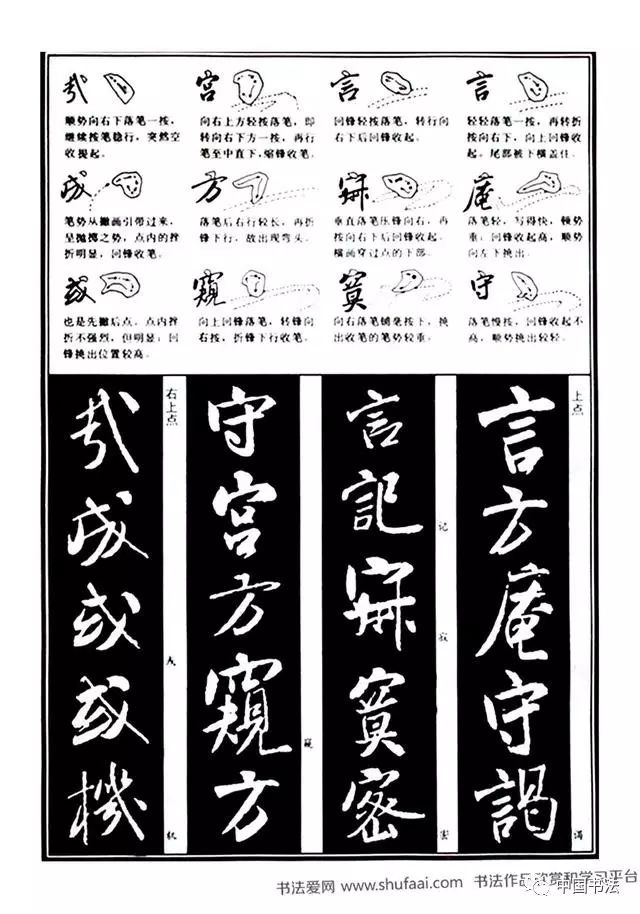 言
轻轻落笔一按，再转折
按向右下，向上回锋收
起。尾部被下横盖住。
言
回锋轻按落笔，转行向
右下后回锋收起。
宫
向右上方轻按落笔，即
转向右下方一按，再行
笔至中直下，缩锋收笔。
哉
顺势向右下落笔一按，
继续按笔稳行，突然空
收提起。
庵
落笔轻，写得快，顿势
重；回锋收起高，顺势
向左下挑出。
寂
垂直落笔压锋向右，再
按向右下后回锋收起。
横画穿过点的下部。
方
落笔后右行较长，再折
锋下行，故出现弯头。
成
笔势从撇画引带过来，
呈抛掷之势，点内的挫
折明显，回锋收笔。
守
落笔慢按，回锋收起不
高，顺势挑出较轻。
寞
向右落笔铺毫按下，挑
出收笔的笔势较重。
窥
向上回锋落笔，转锋向
右按，折锋下行收笔。
或
也是先撇后点。点内挫
折不强烈，但明显；回
锋挑出位置较高。
上点
言方庵守謁
谒
言記寂寞密
记
寂
密
守宫方窺方
窥
右上点
哉成或或機
机
书法爱网 www.shufaai.com 书法作品欣赏和学习平台
中国书法